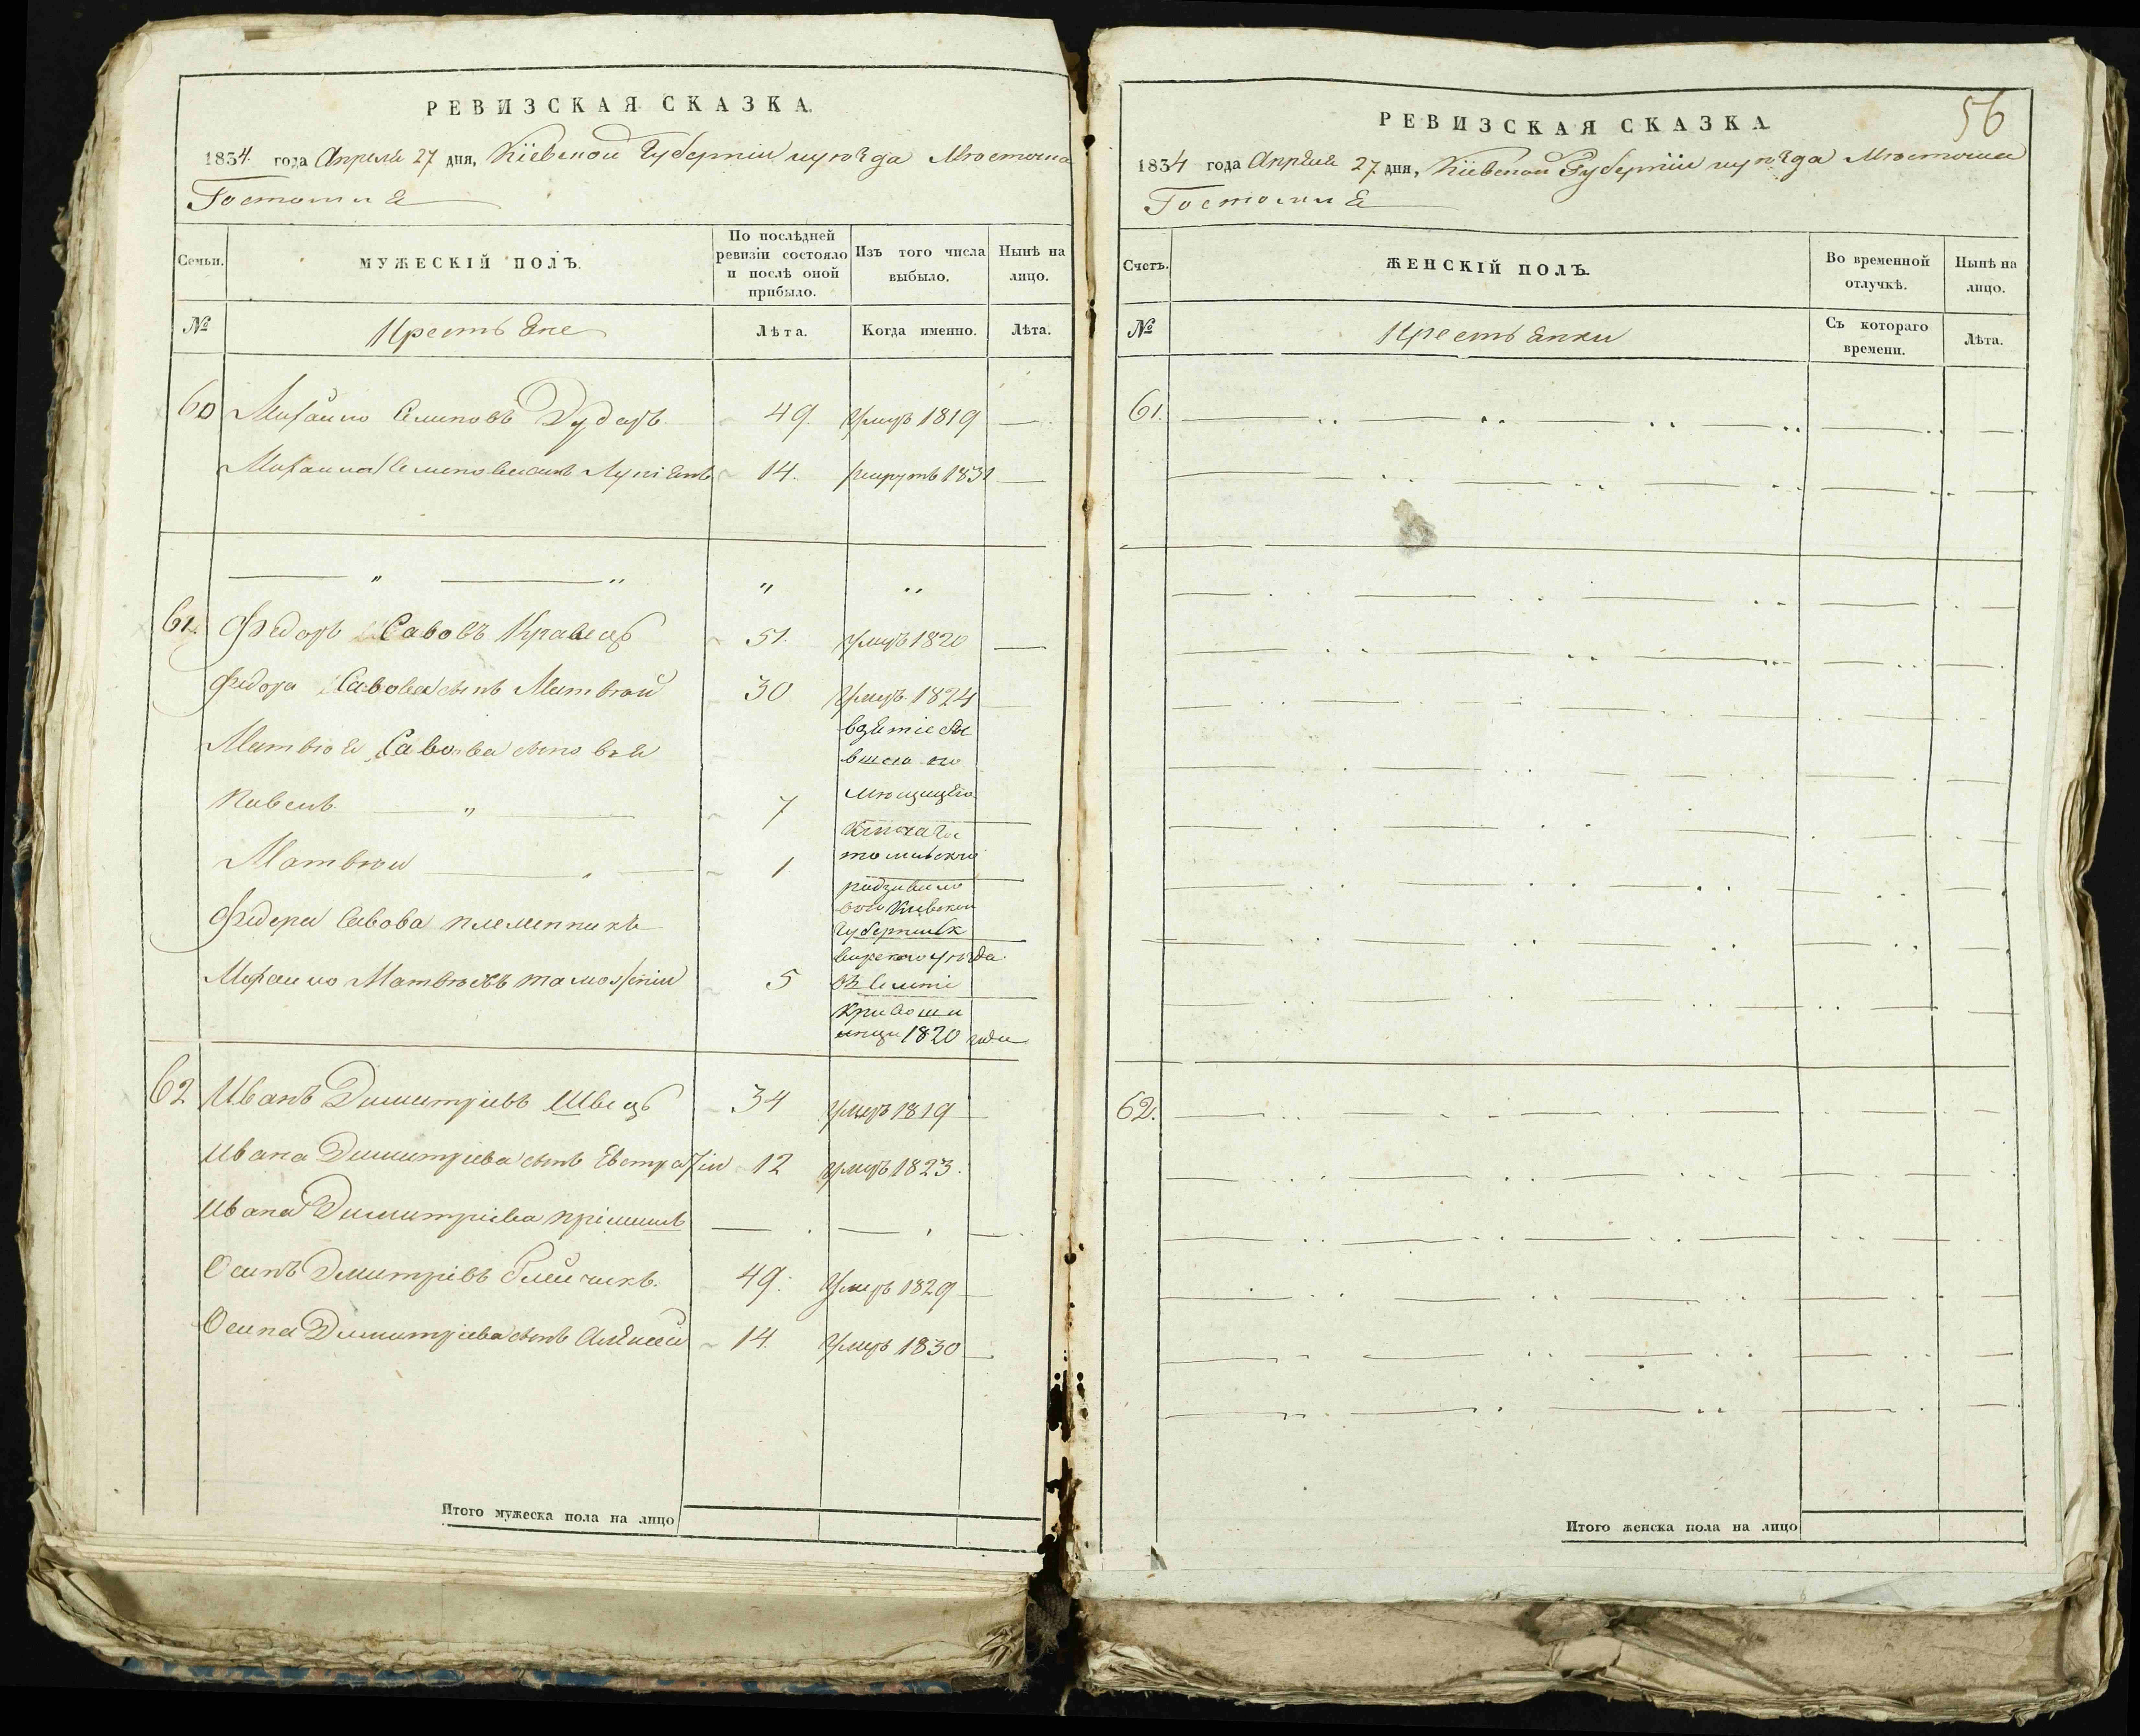 РЕВИЗСКАЯ СКАЗКА
1834 года Апреля 27 дня, Кіевской Губерніи и уѣзда Мѣстечка
Гостомля
Семьи.
МУЖЕСКІЙ ПОЛЪ.
По послѣдней ревизіи состояло и послѣ оной прибыло.
Изъ того числа выбыло.
Нынѣ на лицо.
№
Крестьяне
Лѣта.
Когда именно.
Лѣта.
60 Михайло Семеновъ Дударь 49. умеръ 1819 —
Михайла Семенова сынъ Лукіянъ 14. рекрутъ 1831 —
— " — " " "
61. Федоръ Савовъ Кравецъ 51. умеръ 1820 —
Федора Савова сынъ Матвѣй 30 умеръ 1824 —
Матвѣя Савова сыновья
Павелъ — " — 7
Матвѣй — 1
Федора Савова племянникъ
Михайло Матвѣевъ 5
взятіе бы
вшего
ключа Го
стомльского
Кіевской
Губерніи
уѣзда
1820 года
62 Иванъ Димитріевъ Швецъ 34 умеръ 1819 —
Ивана Димитріева сынъ Евстрафій 12 умеръ 1823.
Ивана Димитріева пріймыъ — . — . — .
Осипъ Дмитріевъ 49. умеръ 1829 —
Осипа Димитріева сынъ Алексей 14. умеръ 1830 —
Итого мужеска пола на лицо
56
РЕВИЗСКАЯ СКАЗКА
1834 года Апреля 27 дня, Кіевской Губерніи и уѣзда Мѣстечка
Гостомля
Счетъ.
ЖЕНСКІЙ ПОЛЪ.
Во временной отлучкѣ.
Нынѣ на лицо.
№
Крестьянки
Съ котораго времени.
Лѣта.
61.
62.
Итого женска пола на лицо